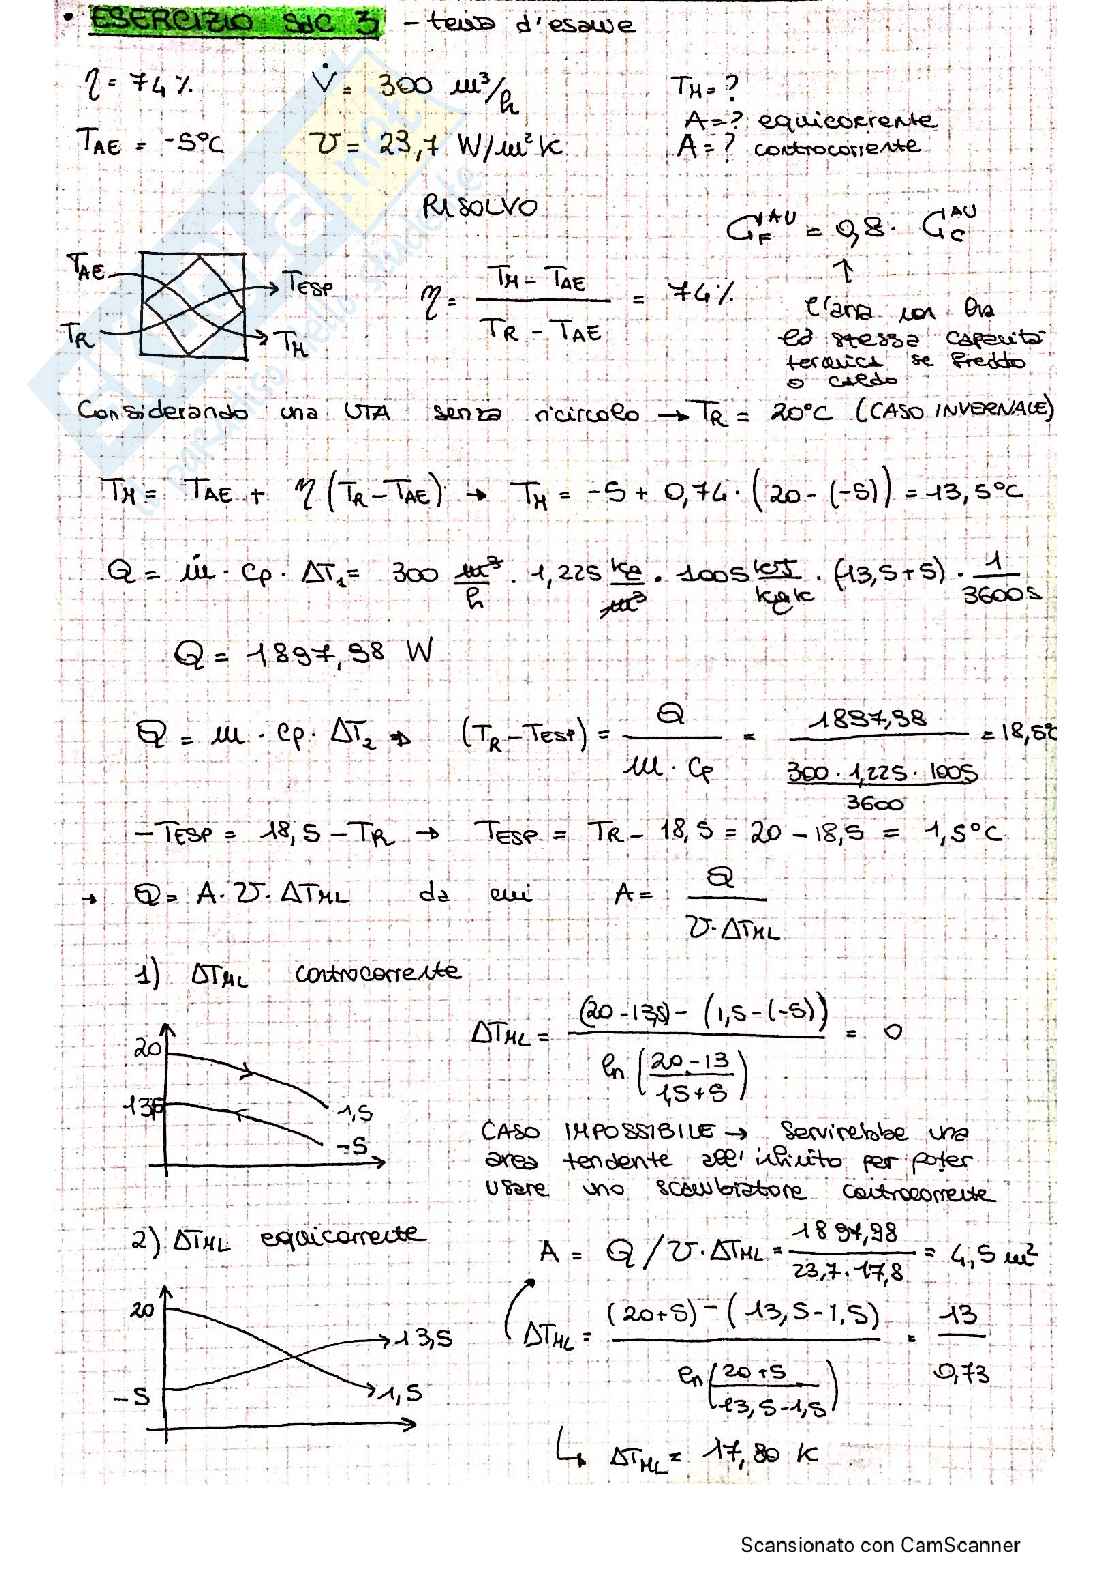 • ESERCIZIO SdC 3 - tema d'esame
η = 74% V̇ = 300 m³/h TM = ?
A = ? equicorrente
TAE = -5°C U = 23,7 W/m²K A = ? controcorrente
RISOLVO
= 0,8 ·
TAE TESP
TR TM
η = (TM - TAE) / (TR - TAE) = 74%
↑
l'aria non ha
la stessa capacità
termica se freddo
o caldo
Considerando una UTA senza ricircolo → TR = 20°C (CASO INVERNALE)
TM = TAE + η (TR - TAE) → TM = -5 + 0,74 · (20 - (-5)) = 13,5°C
Q = ṁ · cp · ΔT₁ = 300 m³/h · 1,225 kg/m³ · 1005 · (13,5 + 5) · 1/3600s
Q = 1897,98 W
Q = m · cp · ΔT₂ → (TR - TESP) = Q / (m · cp) = 1897,98 / (300 · 1,225 · 1005 / 3600) = 18,5°
-TESP = 18,5 - TR → TESP = TR - 18,5 = 20 - 18,5 = 1,5°C
→ Q = A · U · ΔTML da cui A = Q / (U · ΔTML)
1) ΔTML controcorrente
ΔTML = ((20 - 13,5) - (1,5 - (-5))) / ln ((20 - 13) / (1,5 + 5)) = 0
20
13,5
1,5
-5
CASO IMPOSSIBILE → servirebbe una
area tendente all'infinito per poter
usare uno scambiatore controcorrente
2) ΔTML equicorrente
A = Q / U · ΔTML = 1897,98 / (23,7 · 17,8) = 4,5 m²
20
13,5
-5
1,5
ΔTML = ((20 + 5) - (13,5 - 1,5)) / ln ((20 + 5) / (13,5 - 1,5)) = 13 / 0,73
↳ ΔTML = 17,80 K
Scansionato con CamScanner